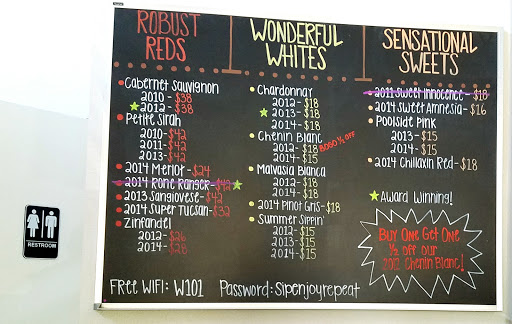 ROBUST
REDS
Cabernet Sauvignon
2010 - $38
2012 - $38
Petite Sirah
2010 - $42
2011 - $42
2013 - $42
2014 Merlot - $24
2014 Rone Ranger - $42
2013 Sangiovese - $42
2014 Super Tuscan - $32
Zinfandel
2012 - $26
2014 - $28
WONDERFUL
WHITES
Chardonnay
2012 - $18
2013 - $18
2014 - $18
Chenin Blanc
2012 - $18 BOGO ½ OFF
2014 - $15
Malvasia Bianca
2012 - $18
2014 - $18
2014 Pinot Gris - $18
Summer Sippin'
2012 - $15
2013 - $15
2014 - $15
SENSATIONAL
SWEETS
2011 Sweet Innocence - $18
2014 Sweet Amnesia - $16
Poolside Pink
2013 - $15
2014 - $15
2014 Chillaxin Red - $18
Award Winning!
BUY ONE GET ONE
½ OFF OUR
2012 CHENIN BLANC!
FREE WIFI: W101 Password: Sipenjoyrepeat
RESTROOM